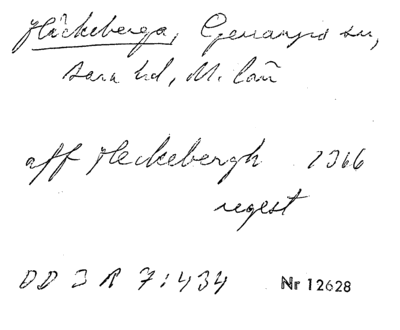 Häckeberga, Genarps sn,
Bara hd, M. län
aff Heckebergh 1366
regest
DD 3 R 7:434 Nr 12628